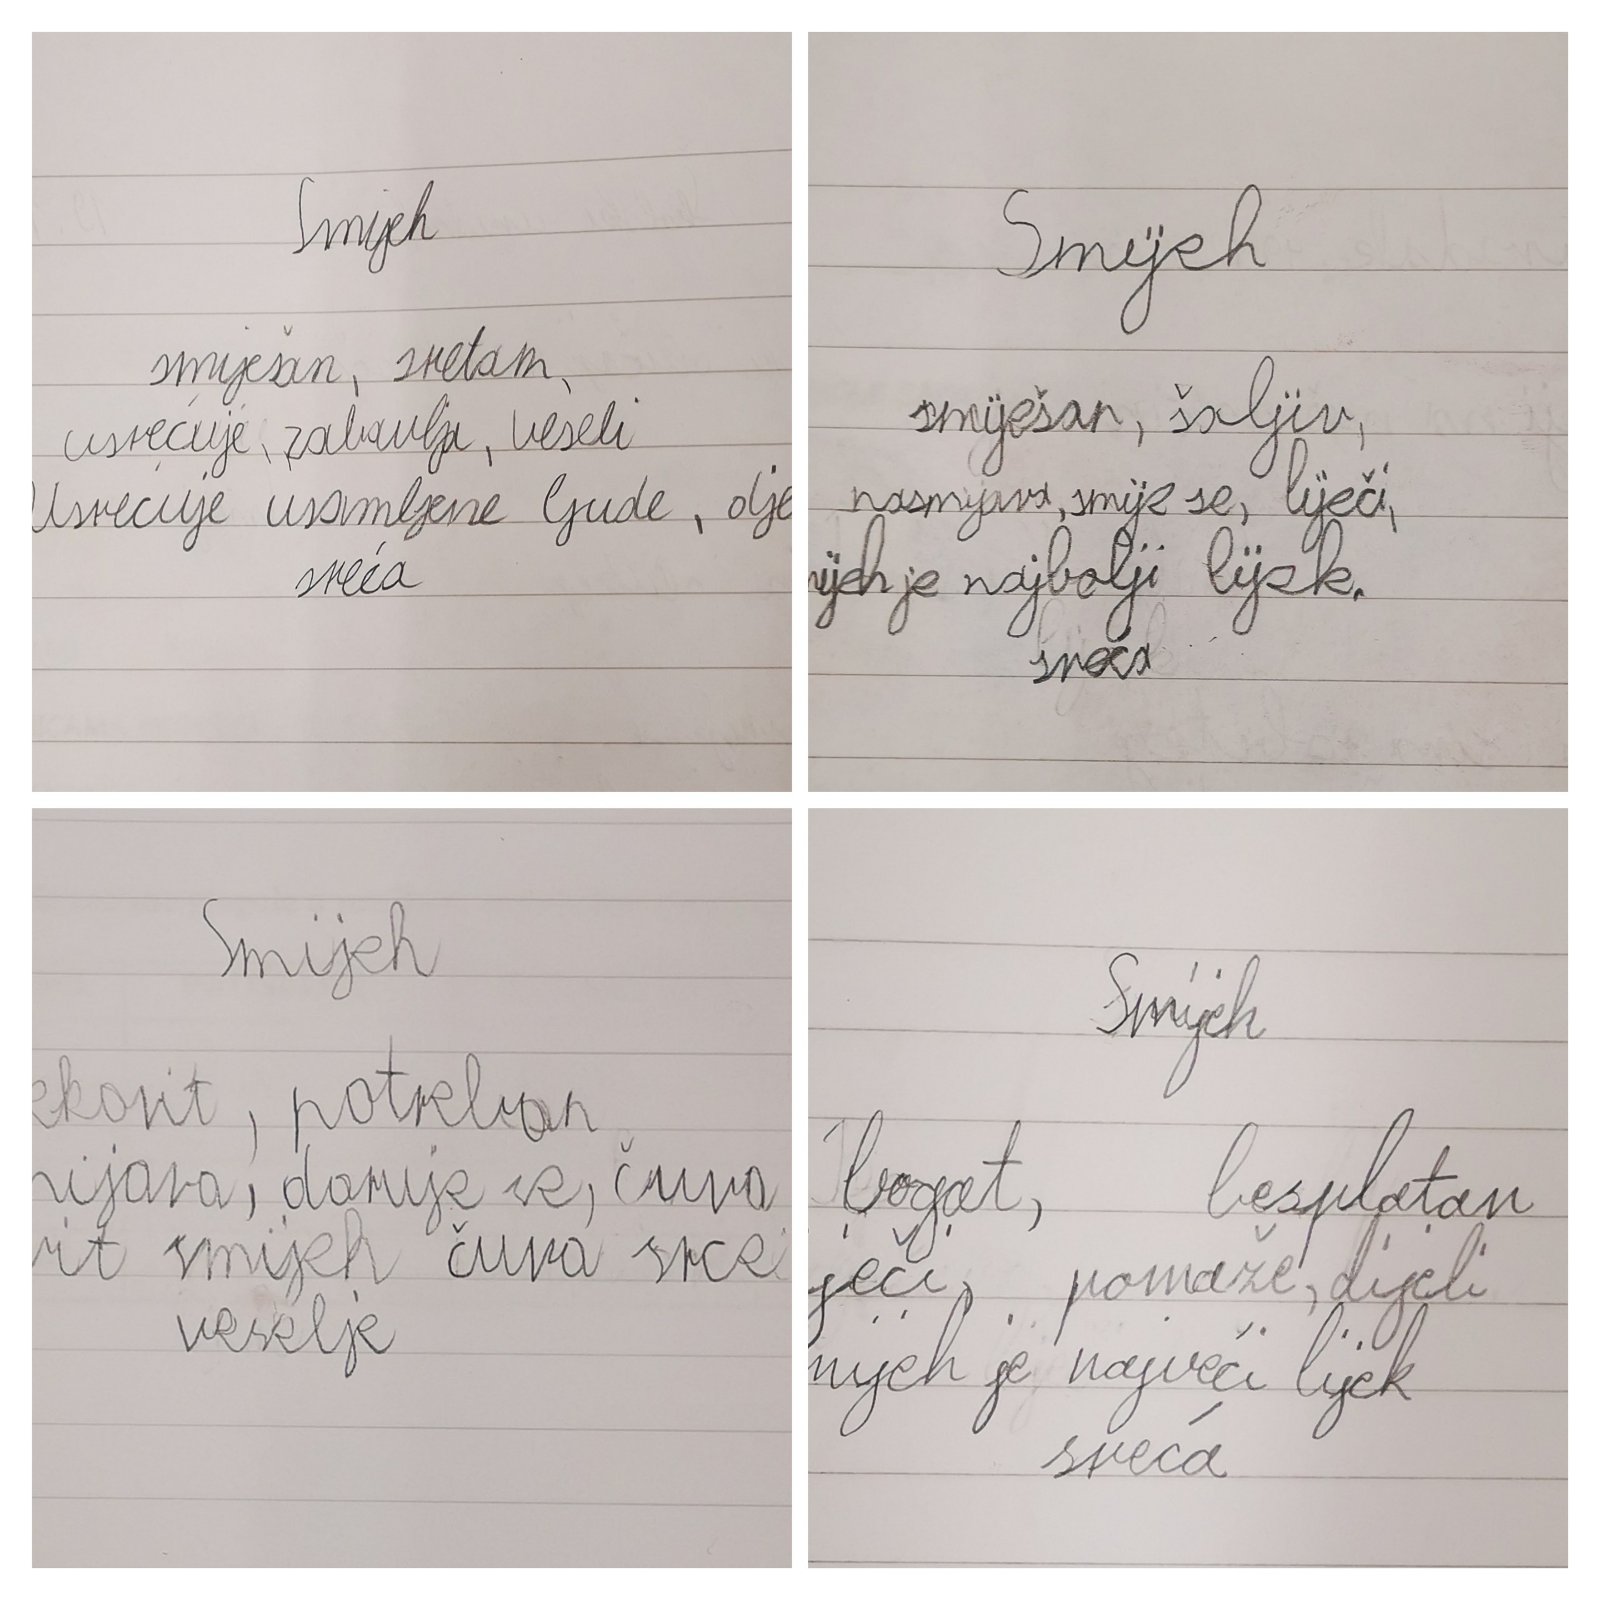 Smijeh
smiješan, sretan,
usrećuje, zabavlja, veseli
Usrećuje usamljene ljude, dje
sreća
Smijeh
smiješan, šaljiv,
nasmijava, smije se, liječi,
mijeh je najbolji lijek.
sreća
Smijeh
ekovit, potreban
mijava, daruje se, čuva
vit smijeh čuva srce
veselje
Smijeh
bogat, besplatan
ječi, pomaže, dijeli
mijeh je najveći lijek
sreća